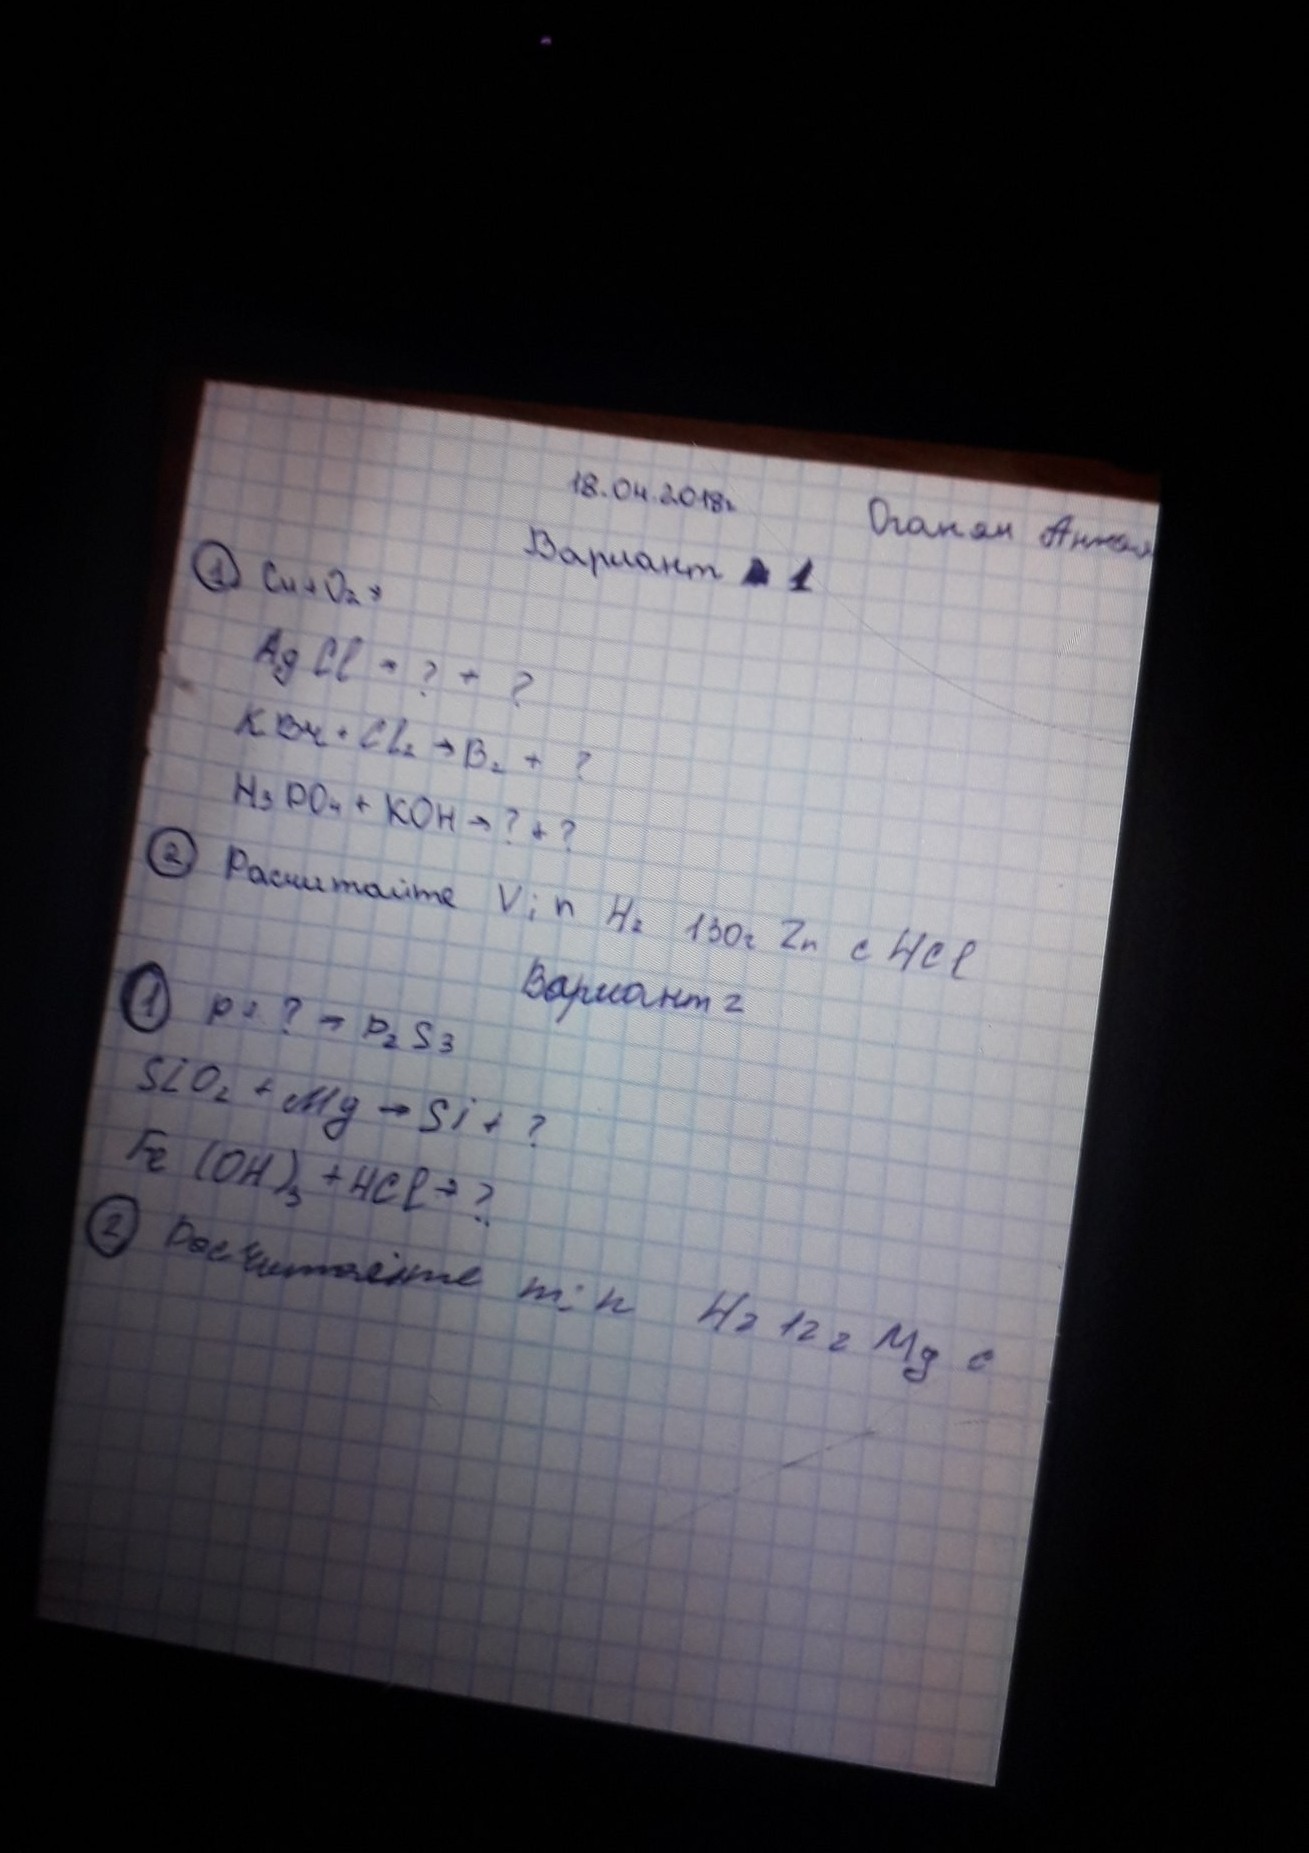 18.04.2018г
Оганян
Вариант 1
① Cu + O₂ →
AgCl → ? + ?
KBr + Cl₂ → B₂ + ?
H₃PO₄ + KOH → ? + ?
② Расчитайте V; n H₂ 130г Zn с HCl
Вариант 2
① P + ? → P₂S₃
SiO₂ + Mg → Si + ?
Fe(OH)₃ + HCl → ?
② Расчитайте m; n H₂ 12г Mg с